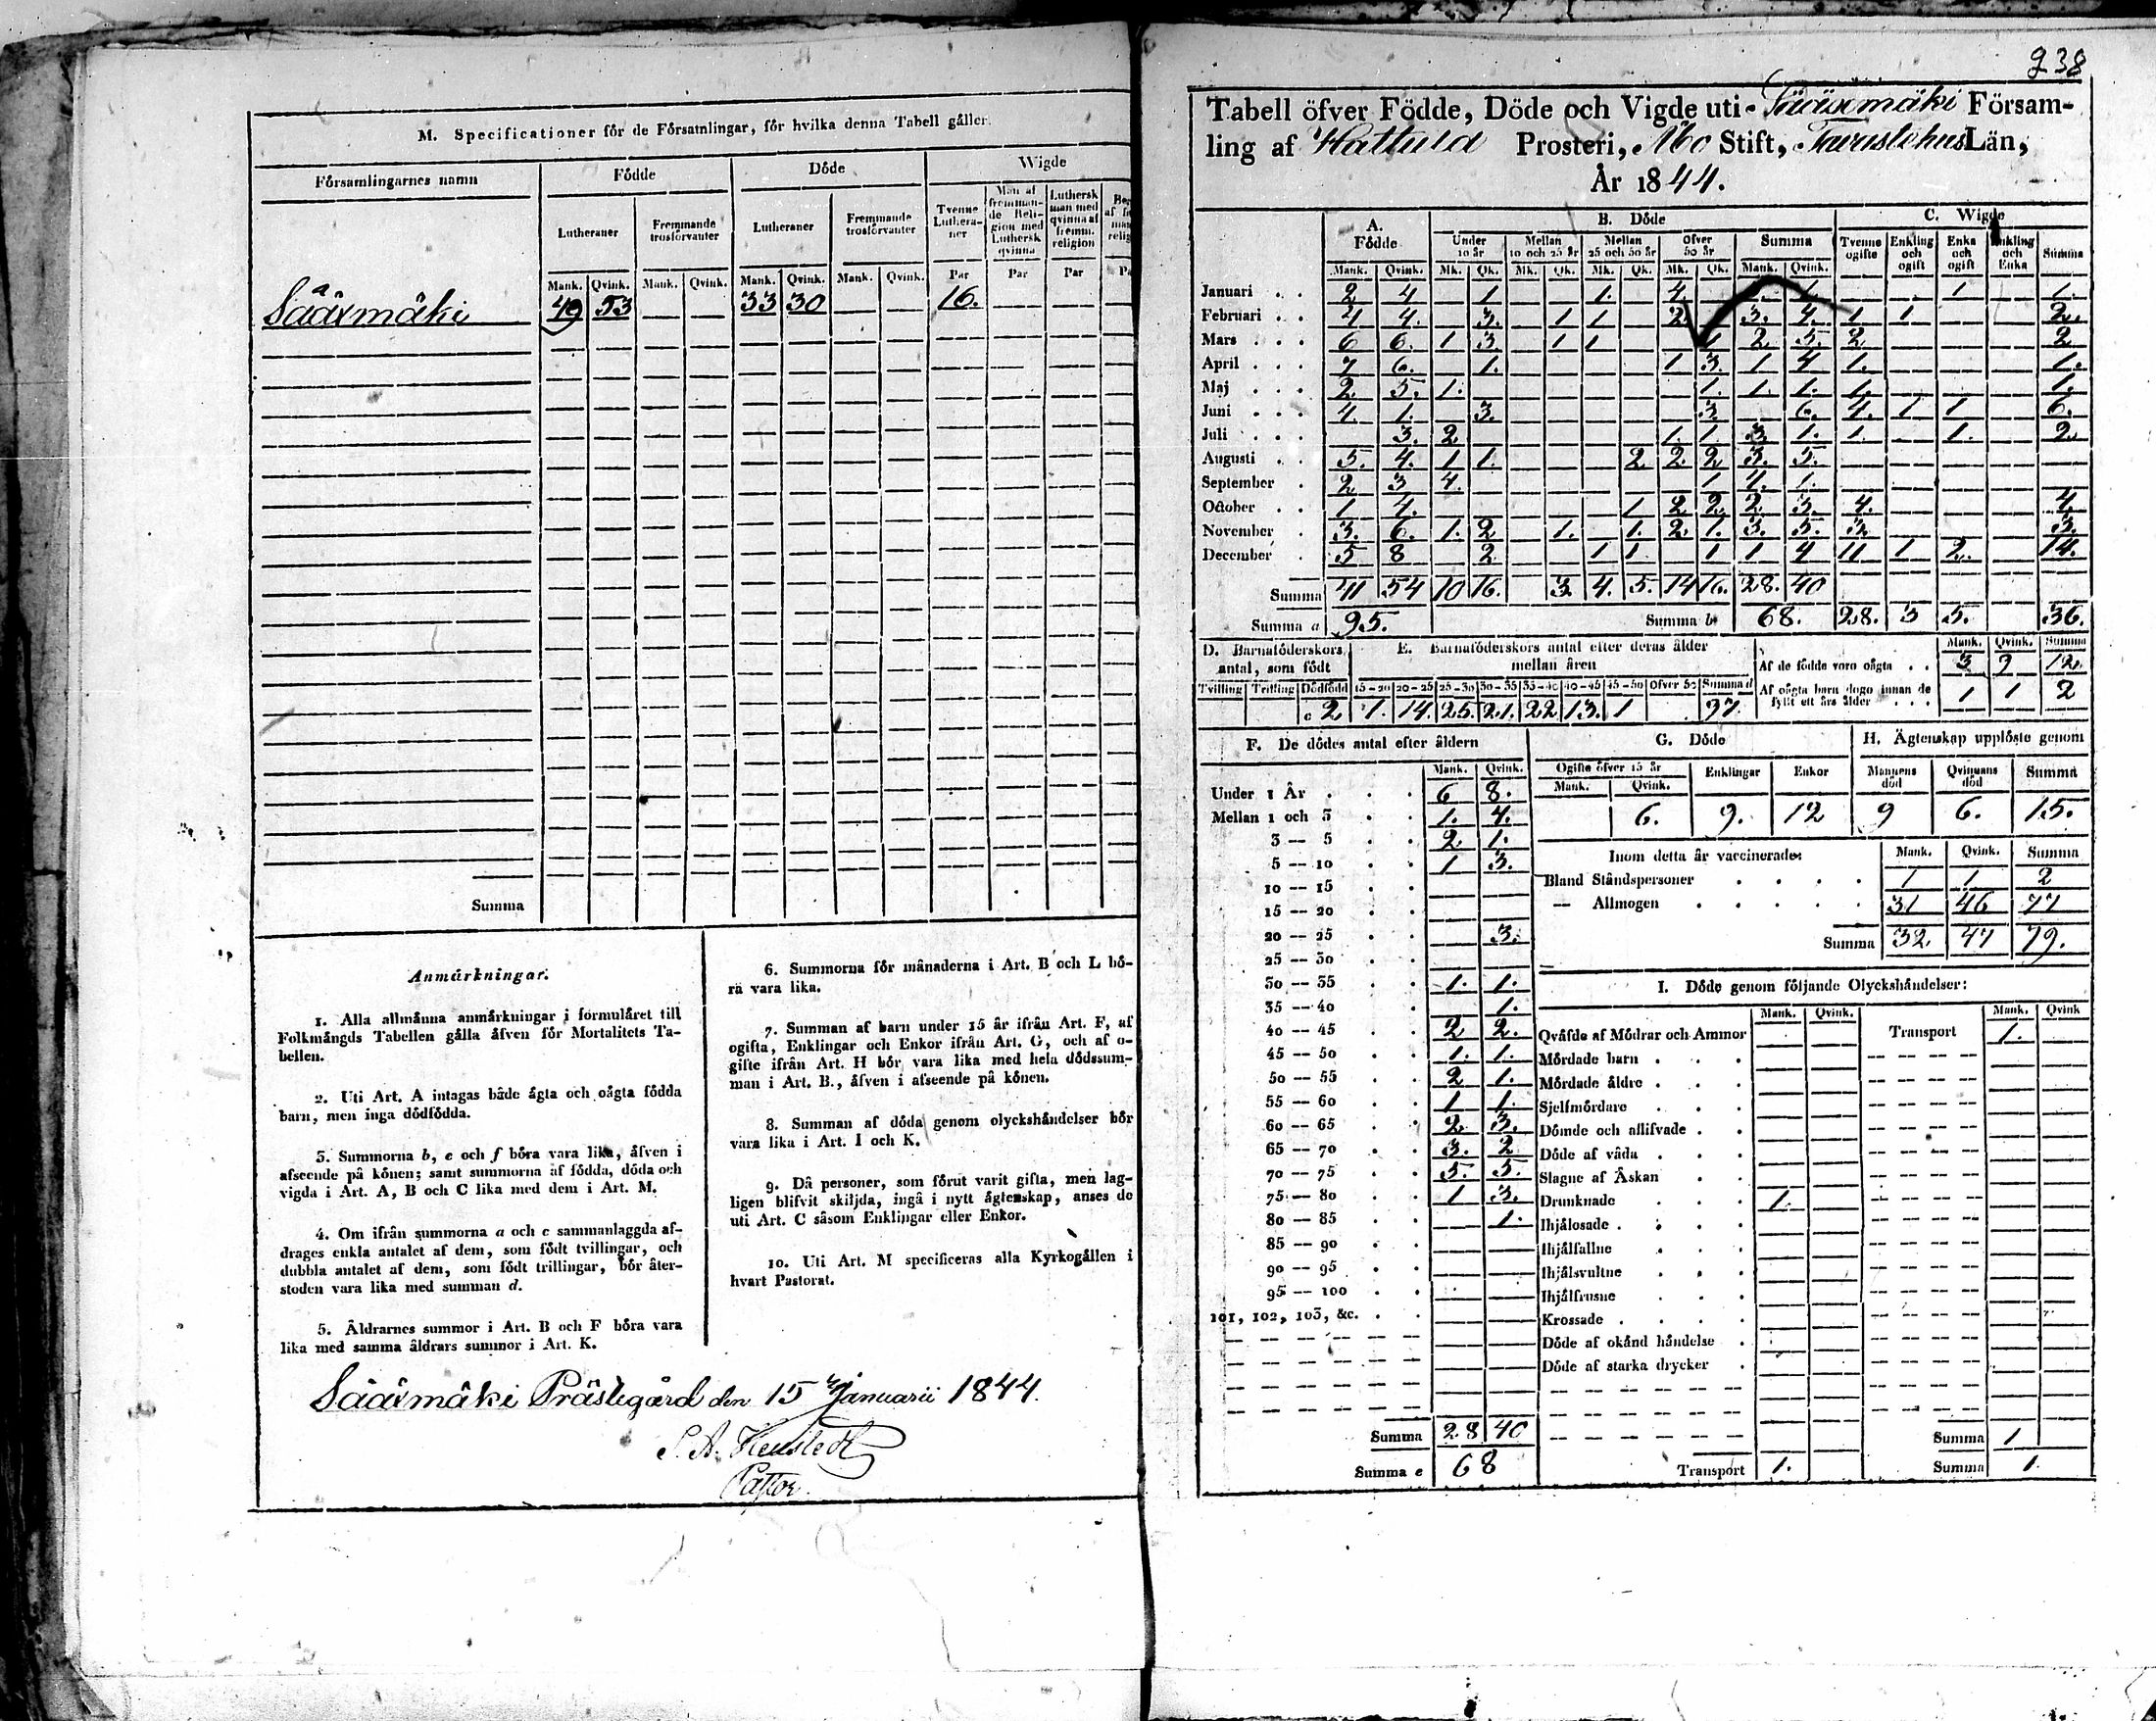 M. Specificationer för de Församlingar, för hvilka denna Tabell gäller.
Församlingarnes namn Födde Döde Wigde
Lutheraner Fremmande trosförvanter Lutheraner Fremmande trosförvanter Tvenne Lutheraner Man af fremmande Religion med Luthersk qvinna Luthersk man med qvinna af fremm. religion
Mank. Qvink. Mank. Qvink. Mank. Qvink. Mank. Qvink. Par Par Par
Sääxmäki 49 53 — — 33 30 — — 16. — —
Summa
Anmärkningar.
1. Alla allmänna anmärkningar i formuläret till
Folkmängds Tabellen gälla äfven för Mortalitets Ta-
bellen.
2. Uti Art. A intagas både ägta och oägta födda
barn, men inga dödfödda.
3. Summorna b, e och f böra vara lika, äfven i
afseende på könen; samt summorna af födda, döda och
vigda i Art. A, B och C lika med dem i Art. M.
4. Om ifrån summorna a och c sammanlaggda af-
drages enkla antalet af dem, som födt tvillingar, och
dubbla antalet af dem, som födt trillingar, bör åter-
stoden vara lika med summan d.
5. Åldrarnes summor i Art. B och F böra vara
lika med samma åldrars summor i Art. K.
6. Summorna för månaderna i Art. B och L bö-
ra vara lika.
7. Summan af barn under 15 år ifrån Art. F, af
ogifta, Enklingar och Enkor ifrån Art. G, och af o-
gifte ifrån Art. H bör vara lika med hela dödssum-
man i Art. B., äfven i afseende på könen.
8. Summan af döda genom olyckshändelser bör
vara lika i Art. I och K.
9. Då personer, som förut varit gifta, men lag-
ligen blifvit skiljda, ingå i nytt ägtenskap, anses de
uti Art. C såsom Enklingar eller Enkor.
10. Uti Art. M specificeras alla Kyrkogällen i
hvart Pastorat.
Sääxmäki Prästegård den 15 Januarii 1844.
Pastor.
238
Tabell öfver Födde, Döde och Vigde uti Sääxmäki Försam-
ling af Hattula Prosteri, Åbo Stift, Tavastehus Län,
År 1844.
A. Födde B. Döde C. Wigde
Under 10 år Mellan 10 och 25 år Mellan 25 och 50 år Öfver 50 år Summa Tvenne ogifte Enkling och ogift Enka och ogift Enkling och Enka Summa
Mank. Qvink. Mk. Qk. Mk. Qk. Mk. Qk. Mk. Qk. Mank. Qvink.
Januari 2 4 1 1. 4 1. 1 1.
Februari 4 4. 3. 1 1 2. 3. 4. 1 1 2.
Mars 6 6. 1 3 1 1 1 2 5. 2 2
April 7 6. 1. 1 3. 1 4 1. 1.
Maj 2 5. 1. 1. 1. 1. 1. 1.
Juni 4. 1. 3. 3. 6. 4. 1 1 6.
Juli 3. 2 1. 1. 3 1. 1. 1. 2.
Augusti 5. 4. 1 1. 2 2 2 3. 5.
September 2 3 4. 1 4. 1.
October 1 4. 1 2 2 2 3. 4. 4.
November 3. 6. 1. 2 1. 1. 2. 1. 3. 5. 3. 3.
December 5 8 2. 1 1. 1 1 4 11 1 2. 14.
Summa 41 54 10 16. 3 4. 5. 14 16. 28. 40
Summa a 95. Summa b 68. 28. 3 5. 36.
D. Barnaföderskors antal, som födt E. Barnaföderskors antal efter deras ålder mellan åren
Mank. Qvink. Summa
Af de födda voro oägta 3 9 12.
Tvilling Trilling Dödfödd 15-20 20-25 25-30 30-35 35-40 40-45 45-50 Öfver 50 Summa d
c 2 1. 14. 25. 21. 22 13. 1 97.
Af oägta barn dogo innan de fyllt ett års ålder 1 1 2
F. De dödes antal efter åldern
Mank. Qvink.
Under 1 År 6 8.
Mellan 1 och 3 1. 4.
3 — 5 2 1.
5 — 10 1 3.
10 — 15
15 — 20
20 — 25 3.
25 — 30
30 — 35 1. 1.
35 — 40 1.
40 — 45 2 2.
45 — 50 1. 1.
50 — 55 2 1.
55 — 60 1 1.
60 — 65 2 3.
65 — 70 3. 2
70 — 75 5. 5.
75 — 80 1 3.
80 — 85 1.
85 — 90
90 — 95
95 — 100
101, 102, 103, &c.
Summa 28 40
Summa e 68
G. Döde H. Ägtenskap upplöste genom
Ogifte öfver 15 år Enklingar Enkor Mannens död Qvinnans död Summa
Mank. Qvink.
6. 9. 12 9 6. 15.
Inom detta år vaccinerade: Mank. Qvink. Summa
Bland Ståndspersoner 1 1 2
— Allmogen 31 46 77
Summa 32. 47 79.
I. Döde genom följande Olyckshändelser:
Mank. Qvink. Mank. Qvink
Qväfde af Mödrar och Ammor Transport 1.
Mördade barn
Mördade äldre
Sjelfmördare
Dömde och aflifvade
Döde af våda
Slagne af Åskan
Drunknade 1.
Ihjälosade
Ihjälfallne
Ihjälsvultne
Ihjälfrusne
Krossade
Döde af okänd händelse
Döde af starka drycker
Summa 1
Transport 1. Summa 1.